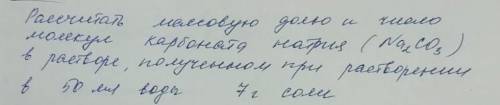 Рассчитать массовую долю и число
молекул карбоната натрия (Na₂CO₃)
в растворе, полученном при растворении
в 50 мл воды 7 г соли